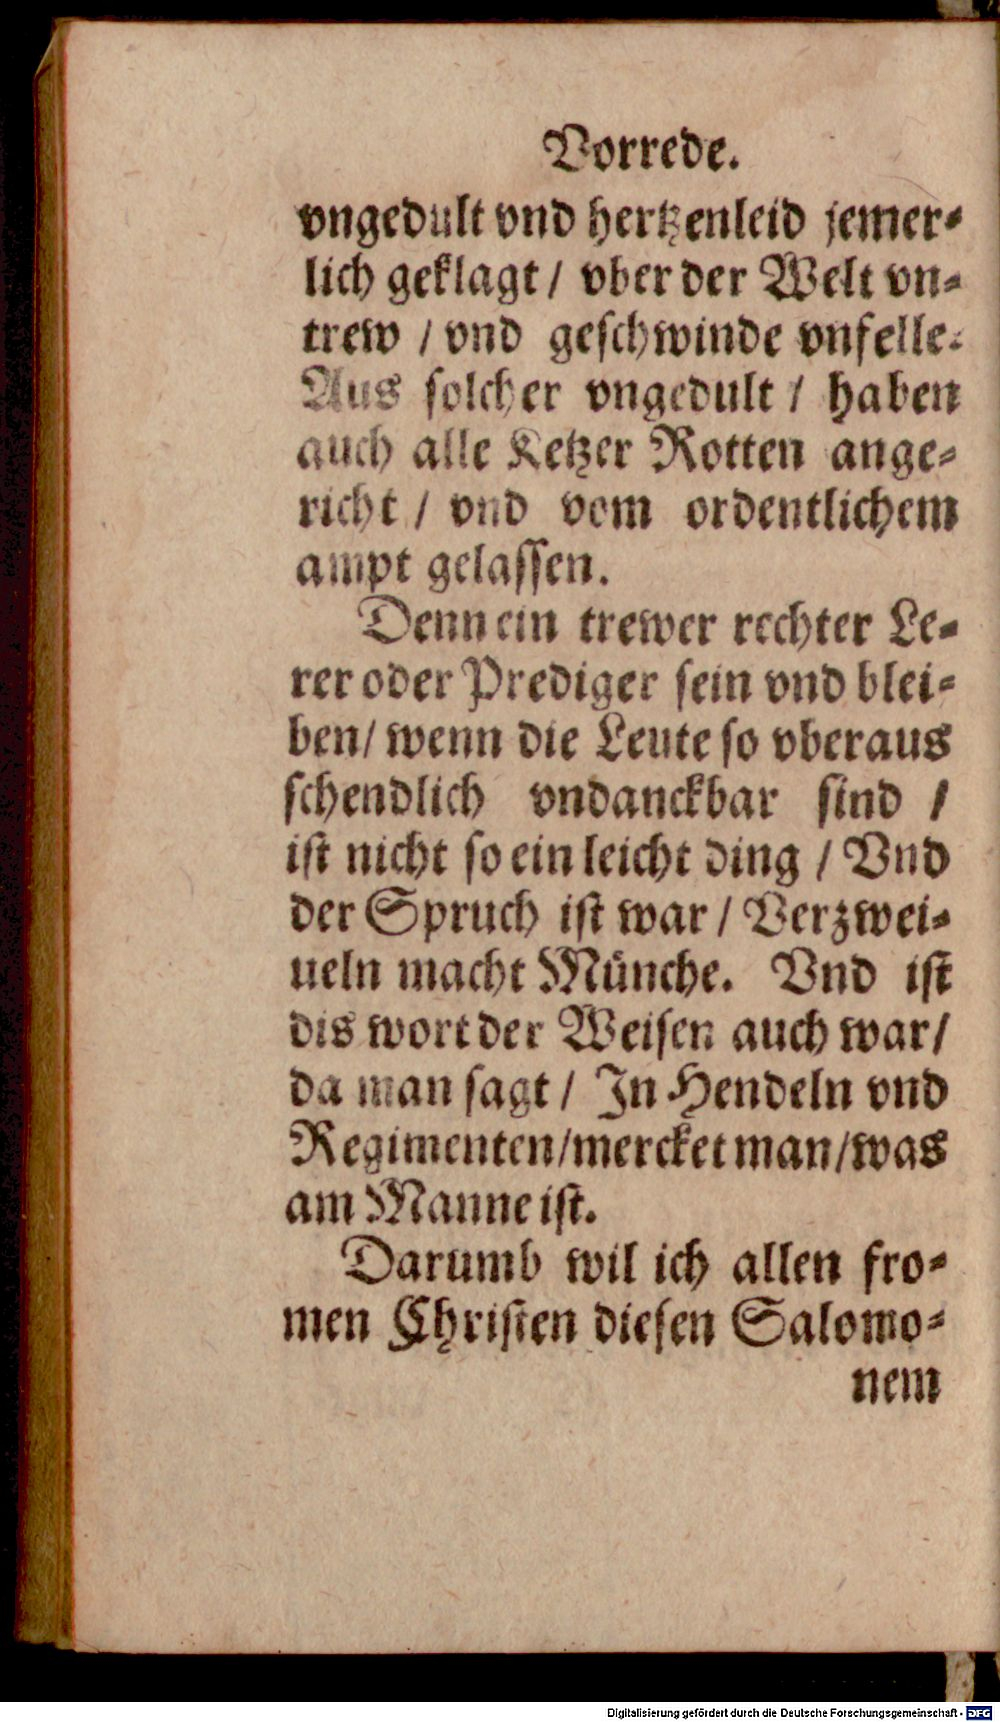 Vorrede.
vngedult vnd hertzenleid jemer⸗
lich geklagt / vber der Welt vn⸗
trew / vnd geschwinde vnfelle.
Aus solcher vngedult / haben
auch alle Ketzer Rotten ange⸗
richt / vnd vom ordentlichem
ampt gelassen.
Denn ein trewer rechter Le⸗
rer oder Prediger sein vnd blei⸗
ben / wenn die Leute so vberaus
schendlich vndanckbar sind /
ist nicht so ein leicht ding / Vnd
der Spruch ist war / Verzwei⸗
ueln macht Münche. Vnd ist
dis wort der Weisen auch war /
da man sagt / In Hendeln vnd
Regimenten / mercket man / was
am Manne ist.
Darumb wil ich allen fro⸗
men Christen diesen Salomo⸗
nem
Digitalisierung gefördert durch die Deutsche Forschungsgemeinschaft - DFG